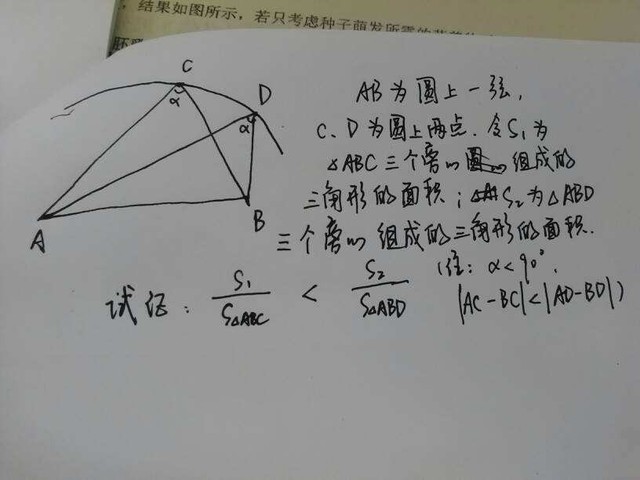 ，结果如图所示，若只考虑种子萌发所需的营养
胚
C
D
α
α
A
B
AB为圆上一弦，
C、D为圆上两点．令S₁为
△ABC三个旁心组成的
三角形的面积；S₂为△ABD
三个旁心组成的三角形的面积．
试证：S₁/S△ABC < S₂/S△ABD
(注：α<90°，
|AC-BC|<|AD-BD|)